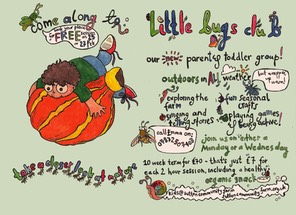 Come along to:
FREE
Little bugs club
our new parent & toddler group!
outdoors in all weather
exploring the farm
fun seasonal crafts
singing and telling stories
playing games
being active!
call Emma on:
join us on either a
Monday or a Wednesday
10 week term for £70 - that's just £7 for
each 2 hour session, including a healthy
organic snack
take a closer look at nature